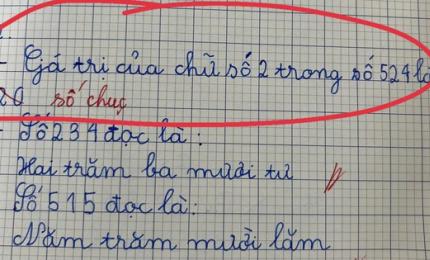 - Giá trị của chữ số 2 trong số 524 là
20 số chục
- Số 234 đọc là:
Hai trăm ba mươi tư
Số 515 đọc là:
Năm trăm mười lăm